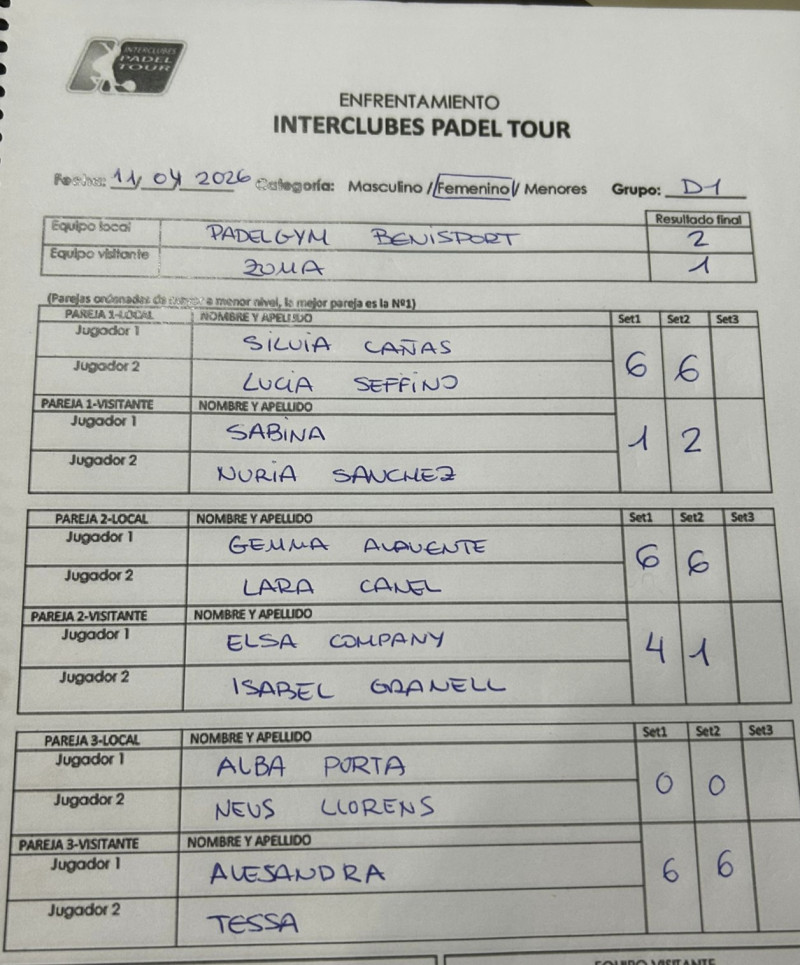 INTERCLUBES
PADEL
TOUR
ENFRENTAMIENTO
INTERCLUBES PADEL TOUR
Fecha: 11/04 2026 Categoría: Masculino / Femenino / Menores Grupo: D1
Resultado final
Equipo local PADELGYM BENISPORT 2
Equipo visitante ZUMA 1
(Parejas ordenadas de mayor a menor nivel, la mejor pareja es la Nº1)
PAREJA 1-LOCAL NOMBRE Y APELLIDO Set1 Set2 Set3
Jugador 1 SILVIA CAÑAS
Jugador 2 LUCIA SEFFINO 6 6
PAREJA 1-VISITANTE NOMBRE Y APELLIDO
Jugador 1 SABINA 1 2
Jugador 2 NURIA SANCHEZ
PAREJA 2-LOCAL NOMBRE Y APELLIDO Set1 Set2 Set3
Jugador 1 GEMMA 6 6
Jugador 2 LARA CANEL
PAREJA 2-VISITANTE NOMBRE Y APELLIDO
Jugador 1 ELSA COMPANY 4 1
Jugador 2 ISABEL GRANELL
PAREJA 3-LOCAL NOMBRE Y APELLIDO Set1 Set2 Set3
Jugador 1 ALBA PORTA 0 0
Jugador 2 NEUS LLORENS
PAREJA 3-VISITANTE NOMBRE Y APELLIDO
Jugador 1 ALESANDRA 6 6
Jugador 2 TESSA
EQUIPO VISITANTE